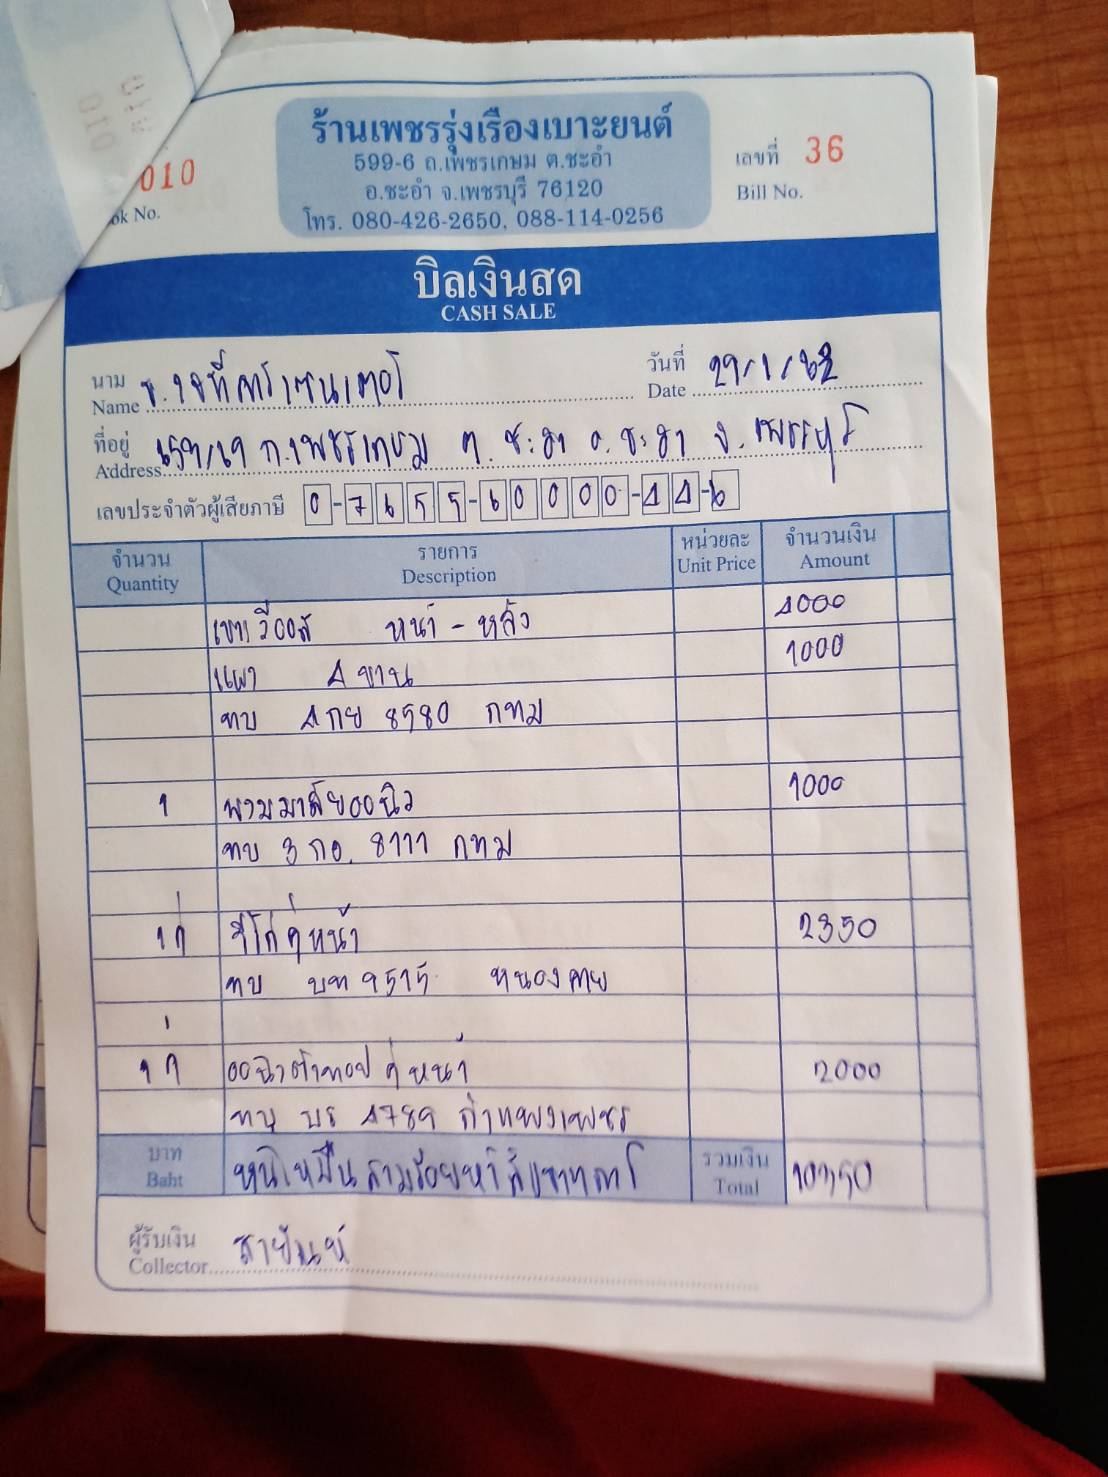 ร้านเพชรรุ่งเรืองเบาะยนต์
599-6 ถ.เพชรเกษม ต.ชะอำ
อ.ชะอำ จ.เพชรบุรี 76120
โทร. 080-426-2650, 088-114-0256
010
ok No.
เลขที่ 36
Bill No.
บิลเงินสด
CASH SALE
นาม
Name
วันที่ 29/1/62
Date
ที่อยู่ ถ.เพชรเกษม ต.ชะอำ อ.ชะอำ จ.เพชรบุรี
Address
เลขประจำตัวผู้เสียภาษี 0-7655-60000-44-6
จำนวน รายการ หน่วยละ จำนวนเงิน
Quantity Description Unit Price Amount
หน้า - หลัง 4000
4 บาน 1000
ทบ 4 กย 8580 กทม
1 พวงมาลัยออนิว 1000
ทบ 3 กอ. 8777 กทม
1 คู่ วีโก้คู่หน้า 2350
ทบ บท 9515 หนองคาย
1 คู่ คู่หน้า 2000
ทบ บร 4789 กำแพงเพชร
บาท หนึ่งหมื่นสามร้อยห้าสิบบาท รวมเงิน 10350
Baht Total
ผู้รับเงิน สายัณห์
Collector